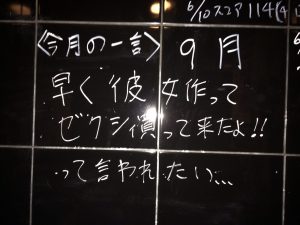 6/10スコア114(4
〈今月の一言〉 9月
早く彼女作って
ゼクシィ買って来たよ!!
って言われたい...